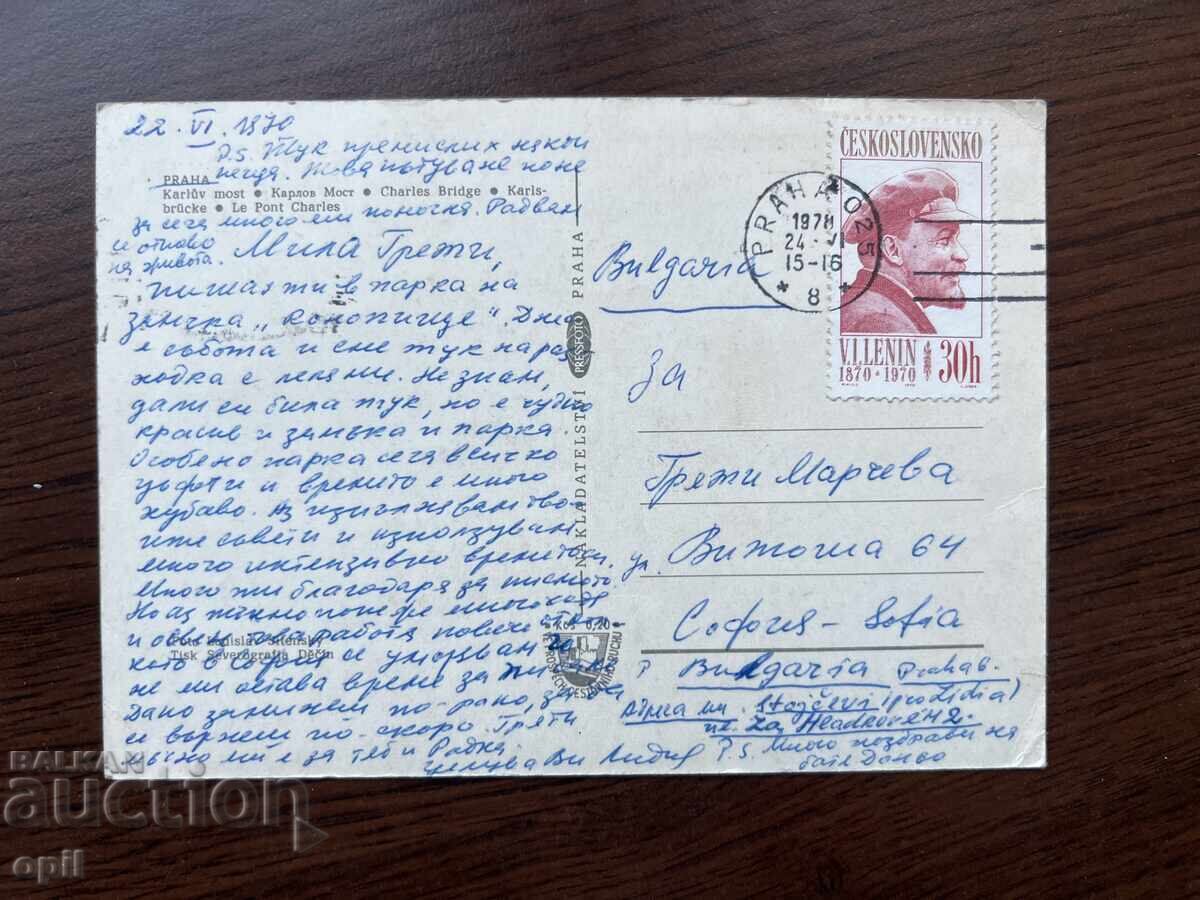 22. VI. 1970
P.S. Тук премислих някои
неща. Това пътуване поне
PRAHA
Karlův most • Карлов Мост • Charles Bridge • Karls-
brücke • Le Pont Charles
за сега много ми помогна. Радвам
се отново
на живота.
Мила Грети,
пиша ти в парка на
замъка „Конопище". Днес
е събота и сме тук на раз
ходка с
Не знам,
дали си била тук, но е чудно
красив и замъка и парка
Особено парка сега всичко
цъфти и времето е много
хубаво. Аз изпълнявам тво-
ите съвети и използувам
много интензивно времето си.
Много ти благодаря за писмото.
Но аз
и
работя повече
като в София се уморявам
не ми остава време за
Дано замижем по-рано, за да
се върнем по-скоро. Грети
мъчно ми е за теб и Радка
целува Ви Лидия
Foto Ladislav Sitenský
Tisk Severografia Děčín
NAKLADATELSTVÍ PRESSFOTO PRAHA
Kčs 0,20
Bulgaria
PRAHA 025
1970
24. VI
15-16
8
ČESKOSLOVENSKO
V.I.LENIN
1870 • 1970
30h
За
Грети Марчева
ул. Витоша 64
София - Sofia
Bulgaria
Praha 6.
Адреса ми: Stojčevi (pro Lidia)
P.S. Много поздрави на
бате Данчо
BALKAN
auction
opil